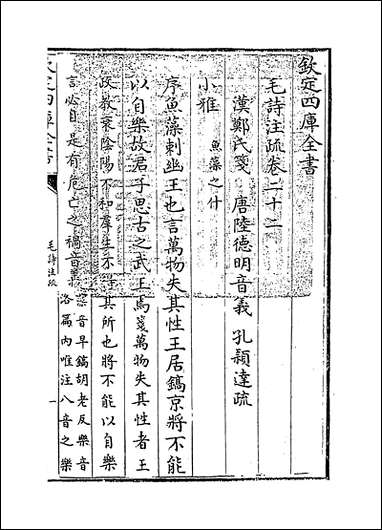 欽定四庫全書
毛詩注疏卷二十二
漢鄭氏箋 唐陸德明音義 孔穎達疏
小雅 魚藻之什
序魚藻刺幽王也言萬物失其性王居鎬京將不能
以自樂故君子思古之武王焉箋萬物失其性者王
政教衰陰陽不和羣生不得其所也將不能以自樂
言必自是有危亡之禍音義藻音早鎬胡老反樂音
洛篇內唯注八音之樂
欽定四庫全書
毛詩注疏
一